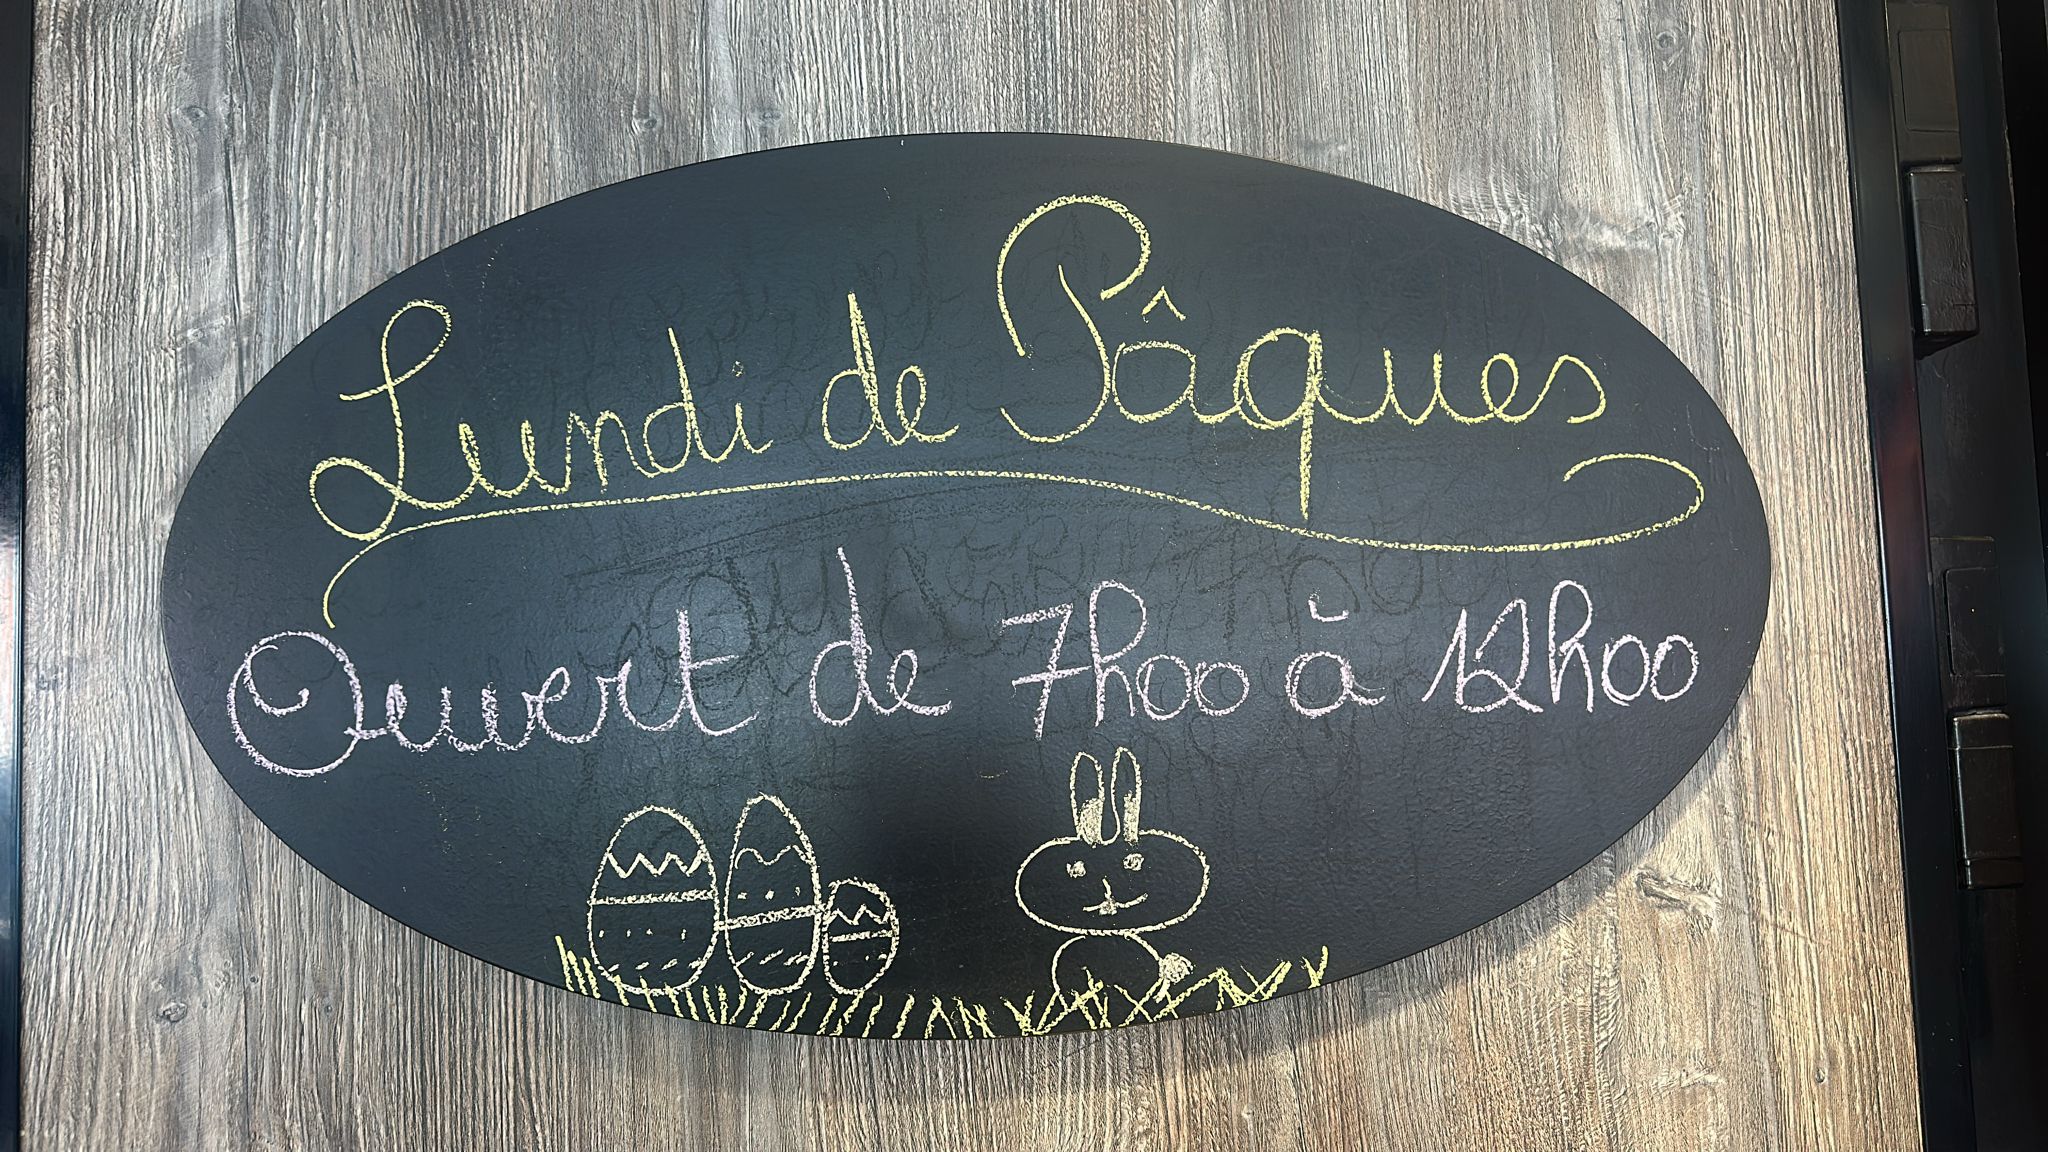 Lundi de Pâques
Ouvert de 7h00 à 12h00